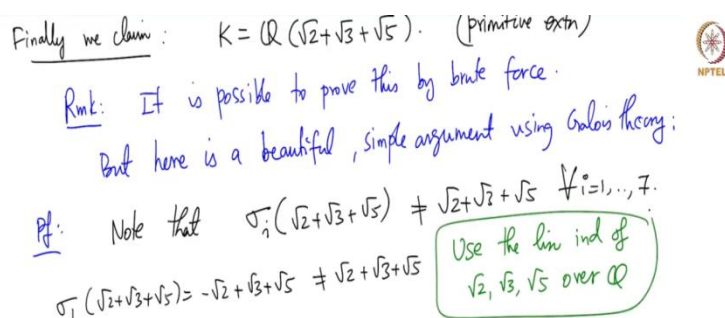 Finally we claim : K = Q (√2+√3+√5). (primitive extn)
NPTEL
Rmk: It is possible to prove this by brute force.
But here is a beautiful, simple argument using Galois theory:
Pf: Note that σᵢ(√2+√3+√5) ≠ √2+√3+√5 ∀ i=1,..,7.
σ₁(√2+√3+√5) = -√2+√3+√5 ≠ √2+√3+√5
Use the lin ind of
√2, √3, √5 over Q